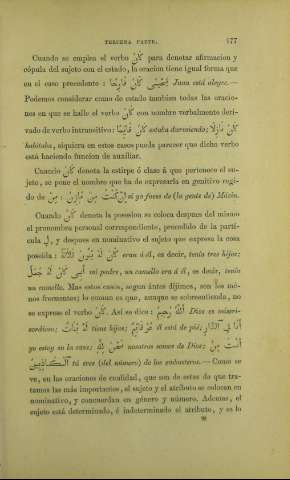 TERCERA PARTE. 177
Cuando se emplea el verbo كَانَ para denotar afirmacion y
cópula del sujeto con el estado, la oracion tiene igual forma que
en el caso precedente : Juan está alegre.—
Podemos considerar como de estado tambien todas las oracio-
nes en que se halle el verbo كَانَ con nombre verbalmente deri-
vado de verbo intransitivo: كَانَ نَائِمًا estaba durmiendo; كَانَ نَازِلًا
habitaba, siquiera en estos casos pueda parecer que dicho verbo
está haciendo funcion de auxiliar.
Cuando كَانَ denota la estirpe ó clase á que pertenece el su-
jeto, se pone el nombre que ha de expresarla en genitivo regi-
do de مِنْ : كُنْتُ مِنْ مَازِنٍ si yo fuese de (la gente de) Mázin.
Cuando كَانَ denota la posesion se coloca despues del mismo
el pronombre personal correspondiente, precedido de la partí-
cula لِ, y despues en nominativo el sujeto que expresa la cosa
poseida : كَانَ لَهُ بَنُونَ ثَلَاثَةٌ eran á él, es decir, tenia tres hijos;
أَبِي كَانَ لَهُ جَمَلٌ mi padre, un camello era á él, es decir, tenia
un camello. Mas estos casos, segun ántes dijimos, son los mé-
nos frecuentes; lo comun es que, aunque se sobreentienda, no
se exprese el verbo كَانَ. Así es dice : أَللّٰهُ رَحِيمٌ Dios es miseri-
cordioso; لَهُ بَنَاتٌ tiene hijas; هُوَ قَائِمٌ él está de pié; أَنَا فِي الدَّارِ
yo estoy en la casa; نَحْنُ لِلّٰهِ nosotros somos de Dios; أَنْتَ مِنَ
الْكَاذِبِينَ tú eres (del número) de los embusteros.—Como se
ve, en las oraciones de cualidad, que son de estas de que tra-
tamos las más importantes, el sujeto y el atributo se colocan en
nominativo, y concuerdan en género y número. Ademas, el
sujeto está determinado, é indeterminado el atributo, y es lo